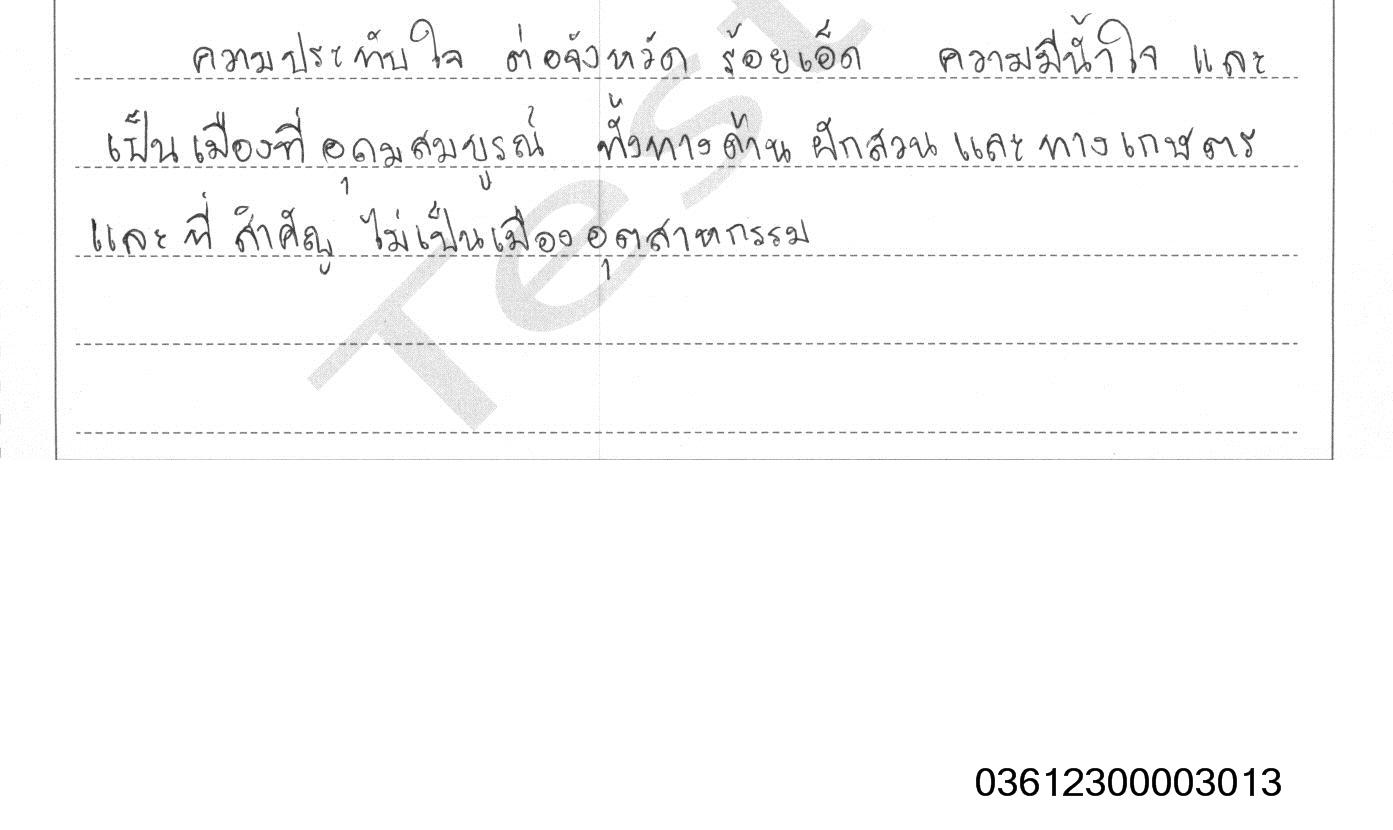 ความประทับใจ ต่อจังหวัด ร้อยเอ็ด ความมีน้ำใจ และ
เป็นเมืองที่ อุดมสมบูรณ์ ทั้งทางด้าน ผักสวน และ ทางเกษตร
และ ที่ สำคัญ ไม่เป็นเมือง อุตสาหกรรม
Test
03612300003013